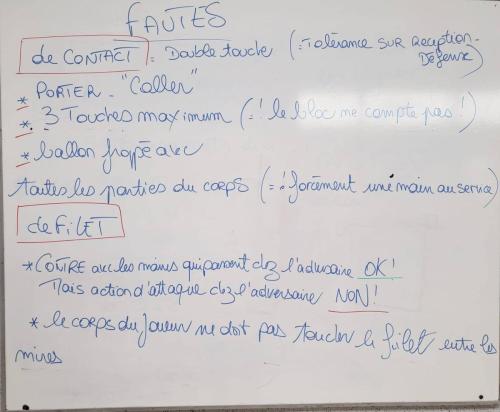 FAUTES
de CONTACT = Double touche (= Tolérance SUR Réception - Défense)
* PORTER - "Coller"
* 3 Touches maximum (= ! le bloc ne compte pas !)
* ballon frappé avec
toutes les parties du corps (= ! forcément une main au service)
de FILET
* CONTRE avec les mains qui passent chez l'adversaire OK!
Mais action d'attaque chez l'adversaire NON!
* le corps du joueur ne doit pas toucher le filet entre les
mires